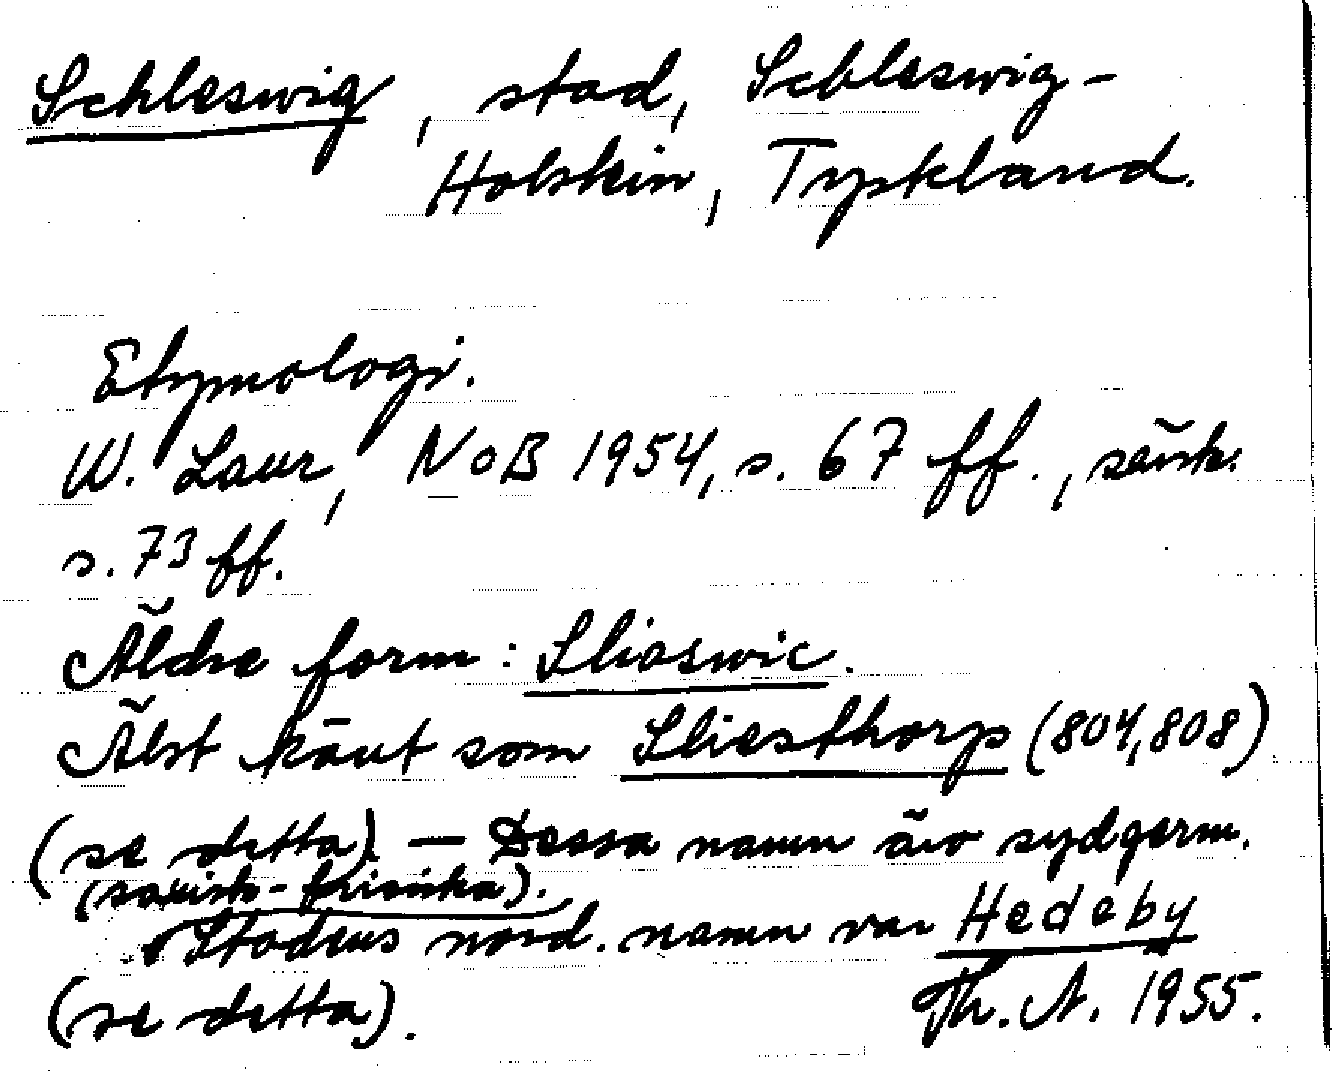 Schleswig, stad, Schleswig-
Holstein, Tyskland.
Etymologi.
W. Laur, NoB 1954, s. 67 ff., särsk.
s. 73 ff.
Äldre form: Sliaswic.
Älst känt som Sliesthorp (804, 808)
(se detta) — Dessa namn äro sydgerm.
(saxisk-frisiska).
Stadens nord. namn var Hedeby
(se detta). Th. A. 1955.